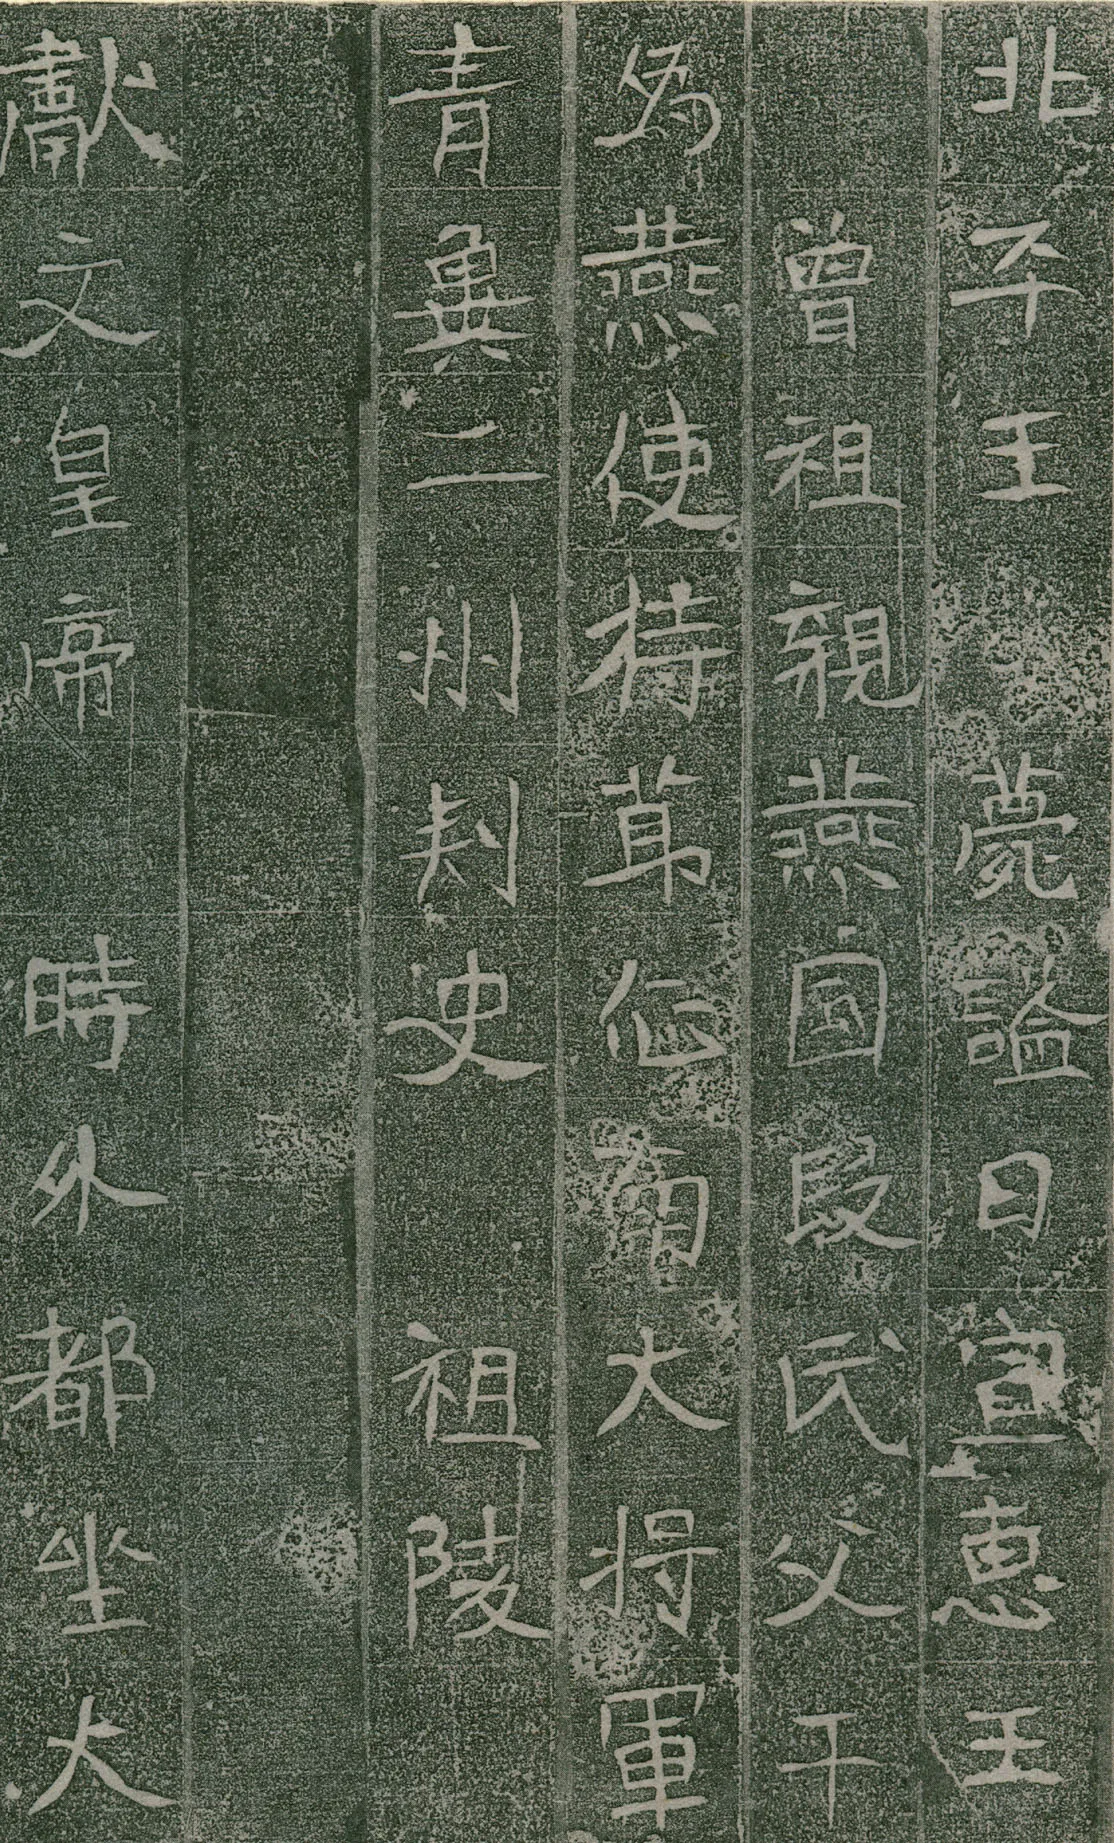 北平王 薨謚曰宣恵王
曾祖親燕國段氏父干
為燕使持節征南大將軍
青冀二州刺史 祖陵
獻文皇帝 時外都坐大